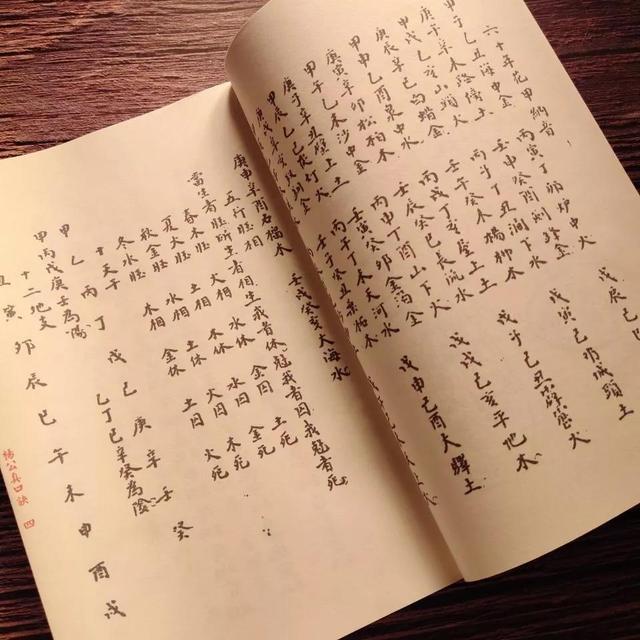 六十年花甲納音
甲子乙丑海中金 丙寅丁卯爐中火 戊辰己
庚午辛未路傍土 壬申癸酉劍鋒金
甲戌乙亥山頭火 丙子丁丑澗下水 戊寅己卯城頭土
庚辰辛巳白蜡金 壬午癸未楊柳木
甲申乙酉泉中水 丙戌丁亥屋上土 戊子己丑霹靂火
庚寅辛卯松柏木 壬辰癸巳長流水
甲午乙未沙中金 丙申丁酉山下火 戊戌己亥平地木
庚子辛丑壁上土 壬寅癸卯金箔金
甲辰乙巳覆灯火 丙午丁未天河水 戊申己酉大驛土
庚戌辛亥釵釧金 壬子癸丑桑柘木
庚申辛酉石榴木 壬戌癸亥大海水
五行旺相
當生者旺所生者相生我者休冠我者囚我冠者死
春木旺 火相 水休 金囚 土死
夏火旺 土相 木休 水囚 金死
秋金旺 水相 土休 火囚 木死
冬水旺 木相 金休 土囚 火死
十天干
甲 乙 丙 丁 戊 己 庚 辛 壬 癸
甲丙戊庚壬為陽 乙丁己辛癸為陰
十二地支
丑 寅 卯 辰 巳 午 未 申 酉 戌
楊公真口訣 四